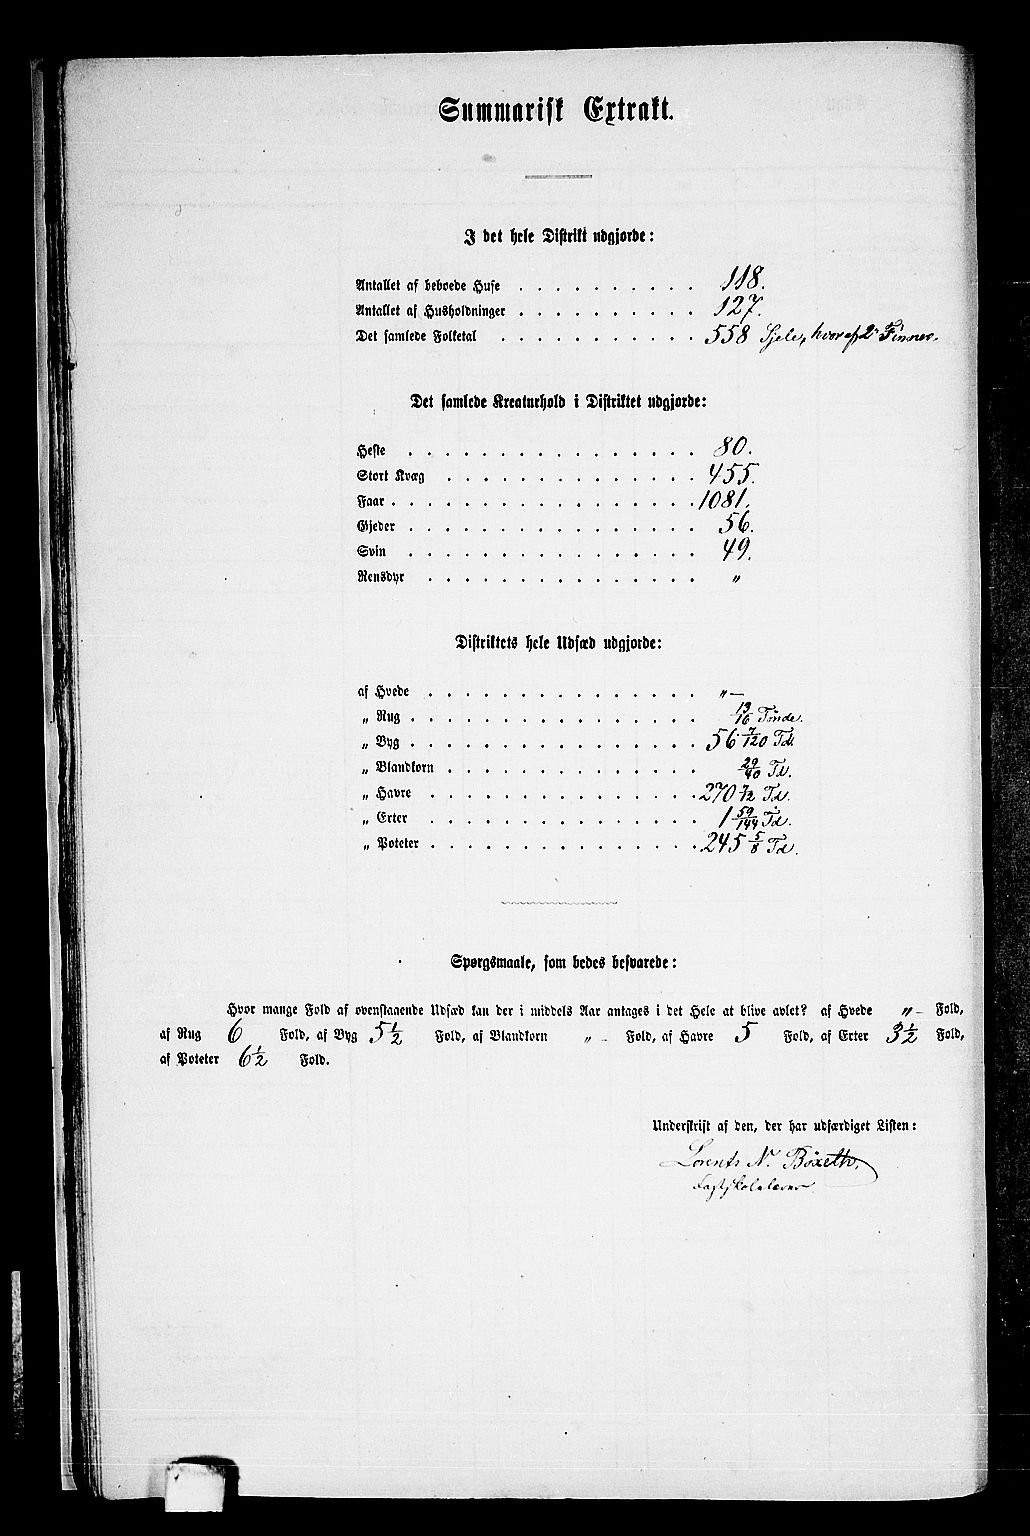 Summarisk Extrakt.
I det hele Distrikt udgjorde:
Antallet af beboede Huse . . . . . . . . . . 118.
Antallet af Husholdninger . . . . . . . . . . 127.
Det samlede Folketal . . . . . . . . . . . 558 Sjele, hvoraf 2 Finner.
Det samlede Kreaturhold i Distriktet udgjorde:
Heste . . . . . . . . . . . . . . . . 80.
Stort Kvæg . . . . . . . . . . . . . . 455.
Faar . . . . . . . . . . . . . . . . . 1081.
Gjeder . . . . . . . . . . . . . . . . 56.
Svin . . . . . . . . . . . . . . . . 49.
Rensdyr . . . . . . . . . . . . . . . "
Distriktets hele Udsæd udgjorde:
af Hvede . . . . . . . . . . . . . . . "—
„ Rug . . . . . . . . . . . . . . . . 13/16 Tønde.
„ Byg . . . . . . . . . . . . . . . . 56 7/120 Td.
„ Blandkorn . . . . . . . . . . . . . . 29/40 Td.
„ Havre . . . . . . . . . . . . . . . 270 Td.
„ Erter . . . . . . . . . . . . . . . 1 59/144 Td.
„ Poteter . . . . . . . . . . . . . . . 245 5/8 Td.
Spørgsmaale, som bedes besvarede:
Hvor mange Fold af ovenstaaende Udsæd kan der i middels Aar antages i det Hele at blive avlet? af Hvede "— Fold,
af Rug 6 Fold, af Byg 5 1/2 Fold, af Blandkorn "— Fold, af Havre 5 Fold, af Erter 3 1/2 Fold,
af Poteter 6 1/2 Fold.
Underskrift af den, der har udfærdiget Listen:
Lorents N. Böxeth.
Fastskolelærer.